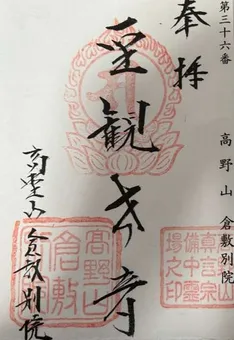 第三十六番 高野山 倉敷別院
奉拝
聖観世音
高野山倉敷別院
真言宗
備中霊
場之印
高野山
倉敷